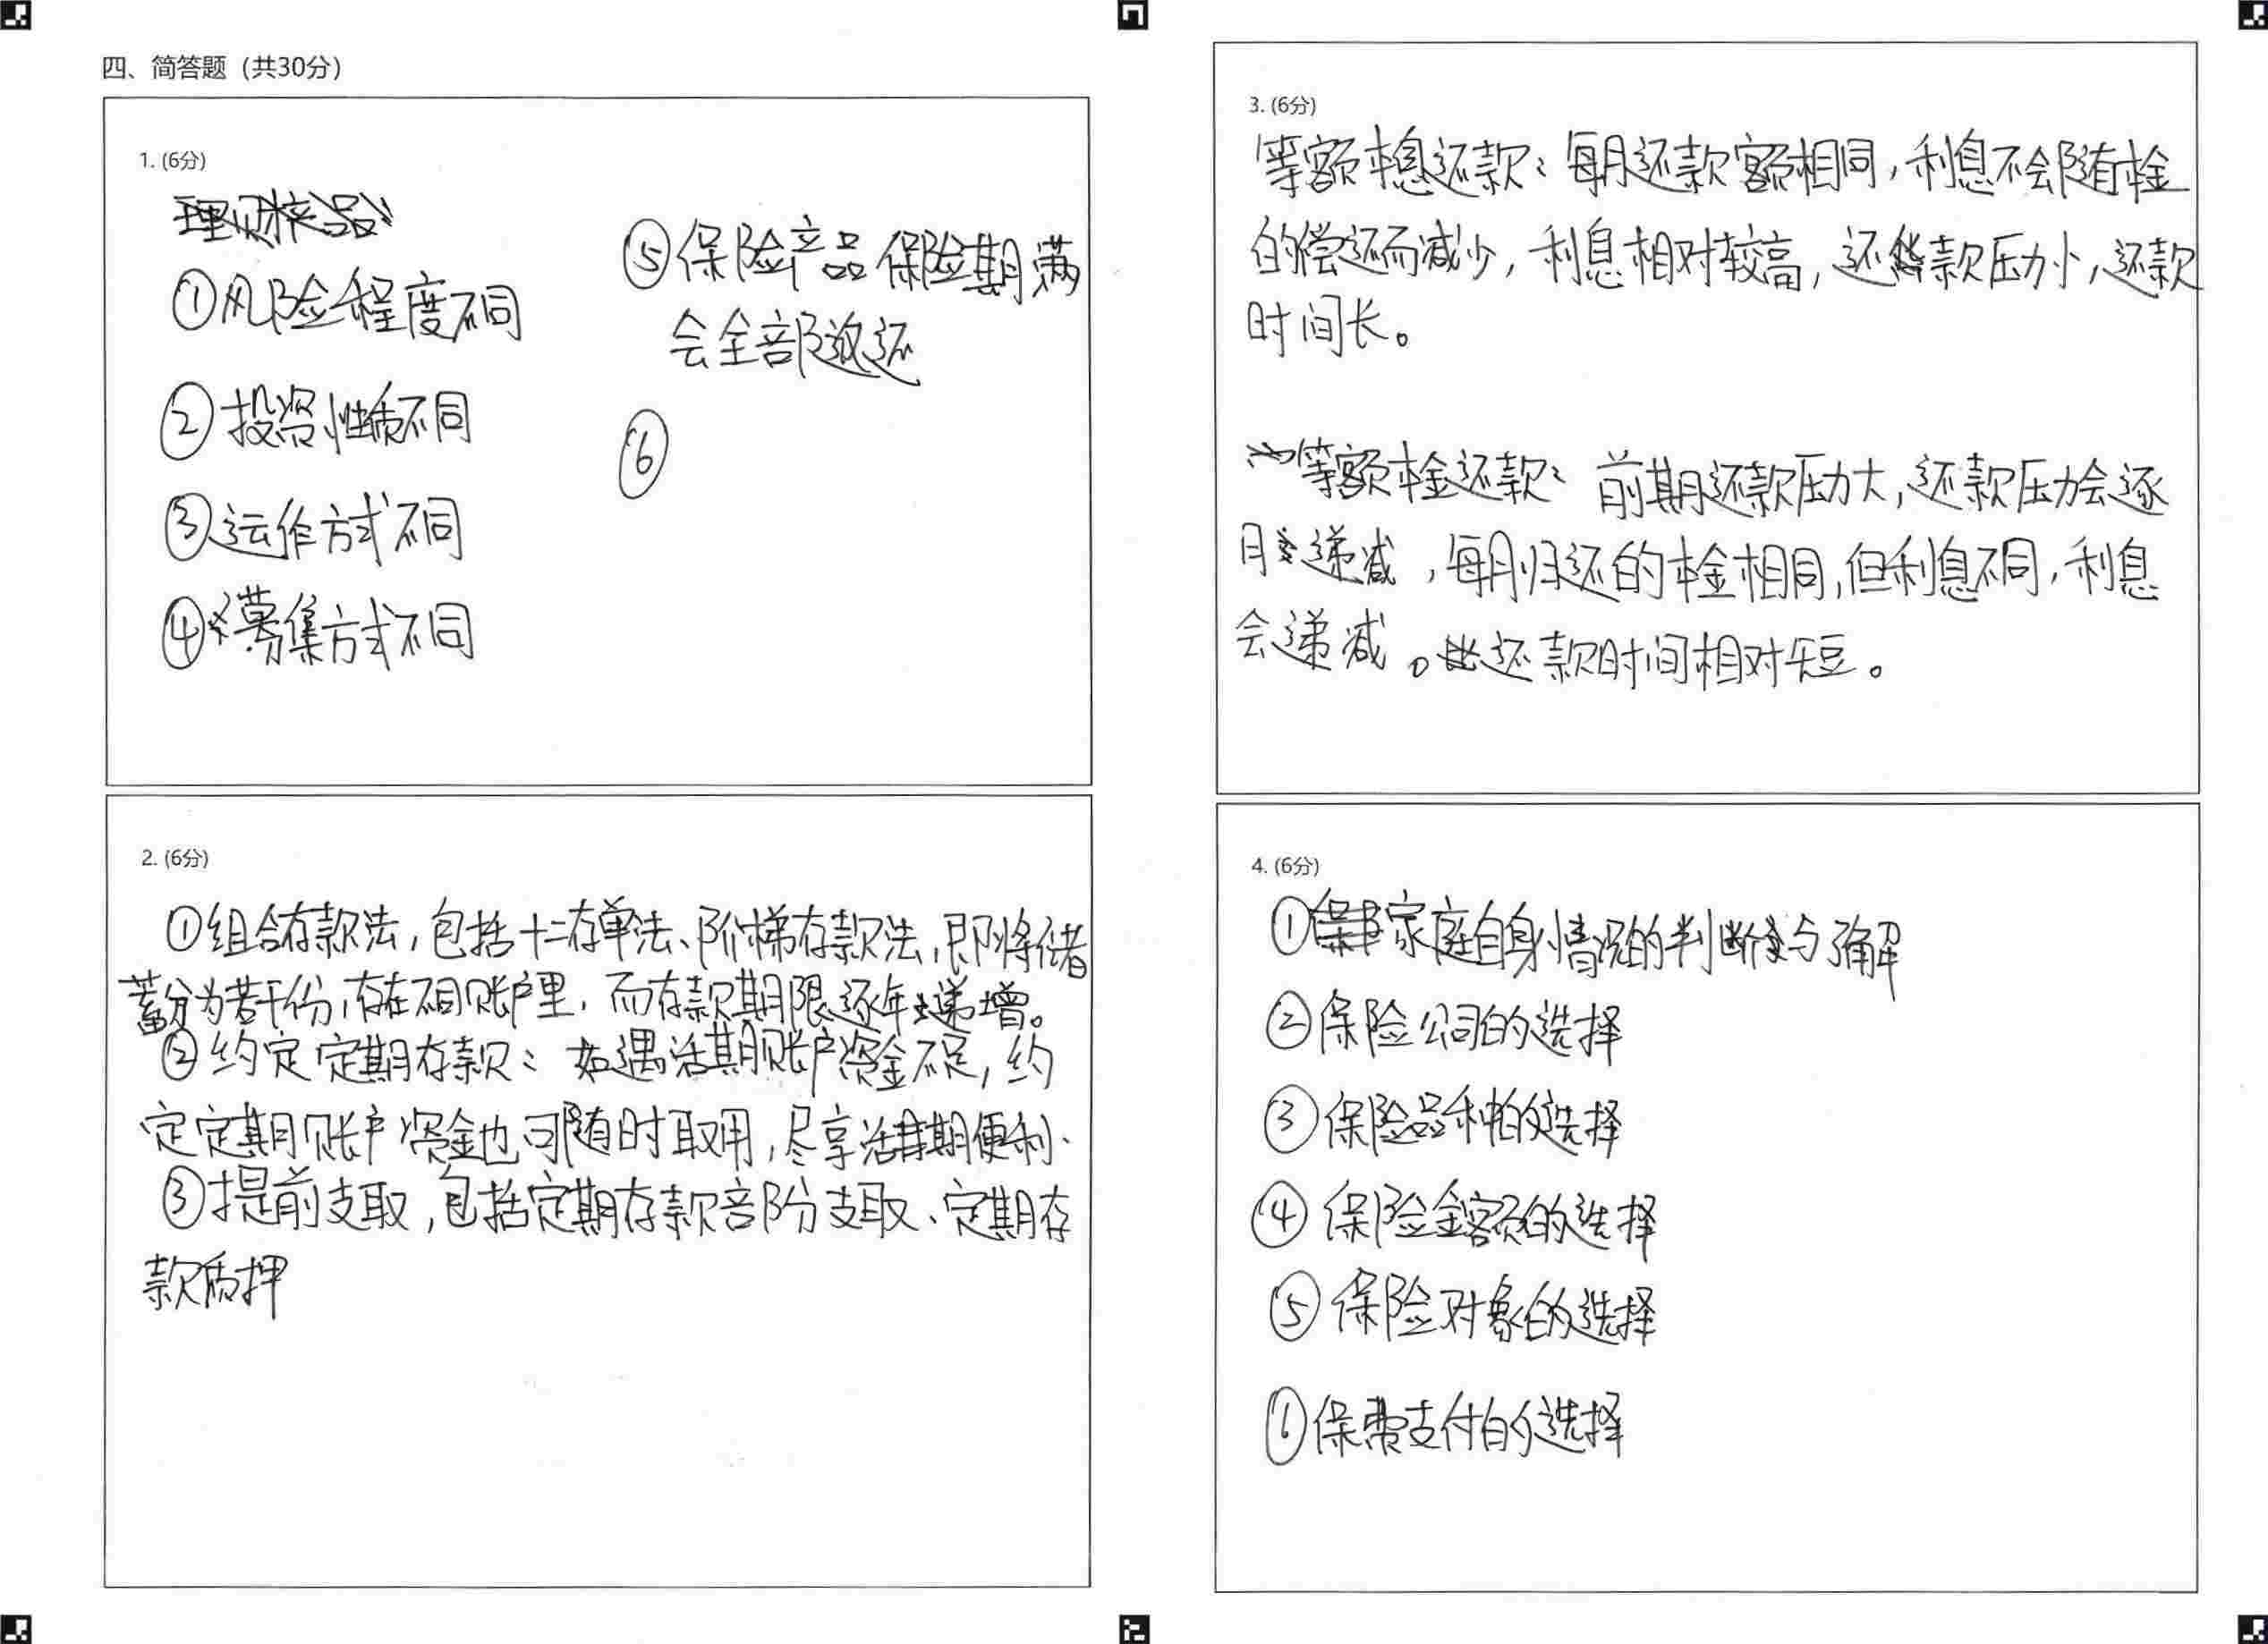 四、简答题（共30分）
1. (6分)
①风险程度不同
②投资性质不同
③运作方式不同
④募集方式不同
⑤保险产品保险期满
会全部返还
⑥
2. (6分)
①组合存款法，包括十二存单法、阶梯存款法，即将储
蓄分为若干份，存在不同账户里，而存款期限逐年递增。
②约定定期存款：如遇活期账户资金不足，约
定定期账户资金也可随时取用，尽享活期便利、
③提前支取，包括定期存款部分支取、定期存
款质押
3. (6分)
等额本息还款：每月还款额相同，利息不会随着本金
的偿还而减少，利息相对较高，还款压力小，还款
时间长。
等额本金还款：前期还款压力大，还款压力会逐
月递减，每月归还的本金相同，但利息不同，利息
会递减。还款时间相对短。
4. (6分)
①家庭自身情况的判断与了解
②保险公司的选择
③保险品种的选择
④保险金额的选择
⑤保险对象的选择
⑥保费支付的选择